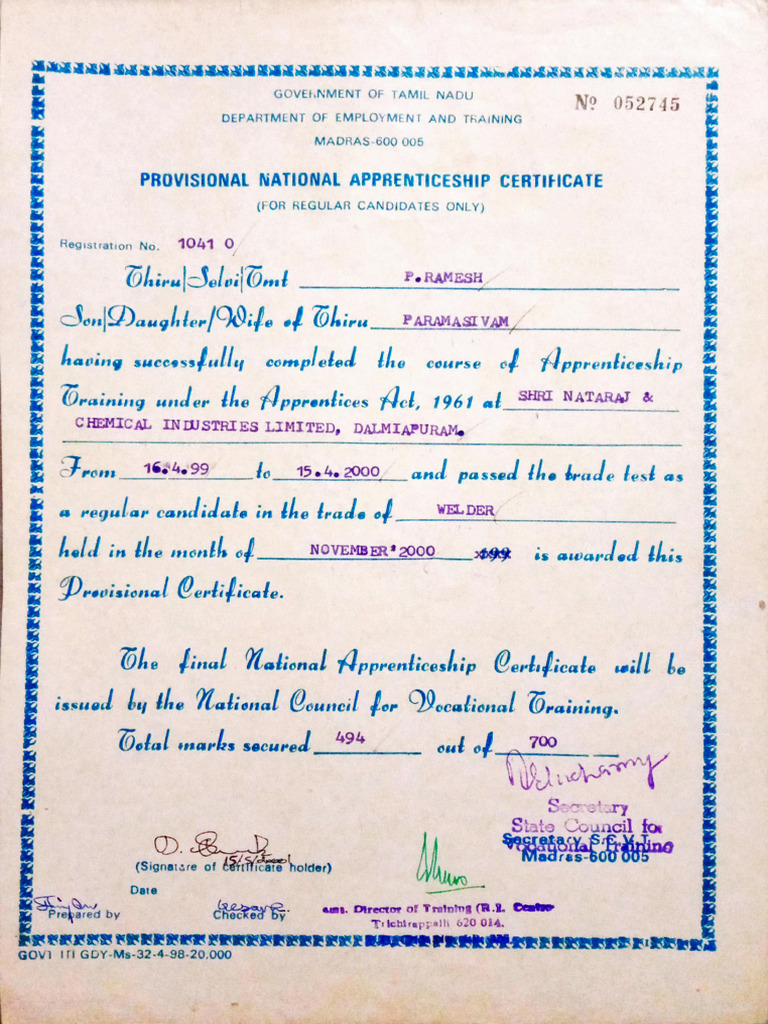 GOVERNMENT OF TAMIL NADU
Nº 052745
DEPARTMENT OF EMPLOYMENT AND TRAINING
MADRAS-600 005
PROVISIONAL NATIONAL APPRENTICESHIP CERTIFICATE
(FOR REGULAR CANDIDATES ONLY)
Registration No. 1041 0/
Thiru|Selvi|Tmt P.RAMESH/
Son|Daughter/Wife of Thiru PARAMASIVAM/
having successfully completed the course of Apprenticeship
Training under the Apprentices Act, 1961 at SHRI NATARAJ &
CHEMICAL INDUSTRIES LIMITED, DALMIAPURAM.
From 16.4.99 to 15.4.2000 and passed the trade test as
a regular candidate in the trade of WELDER/
held in the month of NOVEMBER'2000 199 is awarded this
Provisional Certificate.
The final National Apprenticeship Certificate will be
issued by the National Council for Vocational Training.
Total marks secured 494 out of 700
Secretary
State Council for
Vocational Training
Secretary S.C.V.T.
Madras-600 005
(Signature of certificate holder)
Date
Prepared by
Checked by
Director of Training (R.I. Centre
Tiichirappalli 620 014.
GOVT ITI GDY-Ms-32-4-98-20,000